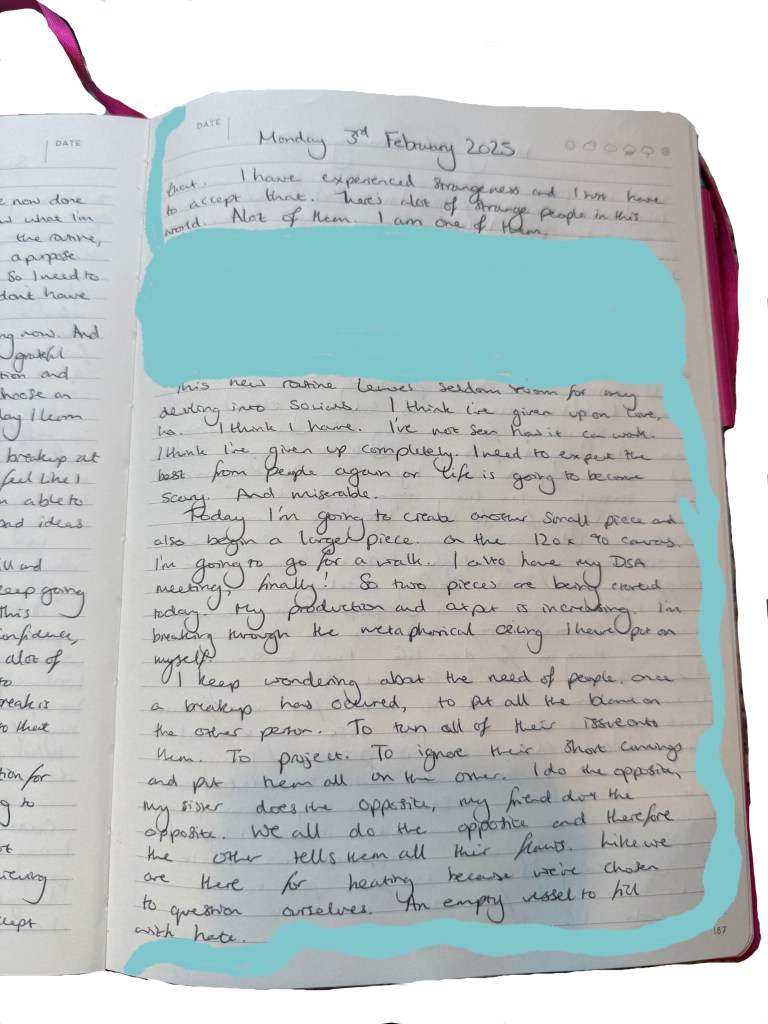 DATE
e now done
w what I'm
the routine,
a purpose
So I need to
dont have
ng now. And
grateful
tion and
hoose an
day I learn
breakup at
feel like I
n able to
bad ideas
ill and
keep going
this
onfidence,
alot of
to
reak is
to that
tion for
g to
ot
iewing
cept
DATE
Monday 3rd February 2025
that. I have experienced strangeness and I just have
to accept that. Theres alot of strange people in this
world. Alot of them. I am one of them.
This new routine leaves seldom room for my
delving into socials. I think I've given up on love,
ha. I think I have. I've not seen how it can work.
I think I've given up completely. I need to expect the
best from people again or life is going to become
scary. And miserable.
Today I'm going to create another small piece and
also begin a larger piece. on the 120 x 90 canvas.
I'm going to go for a walk. I also have my DSA
meeting, finally! So two pieces are being created
today. My production and output is increasing. I'm
breaking through the metaphorical ceiling I have put on
myself.
I keep wondering about the need of people, once
a breakup has occured, to put all the blame on
the other person. To turn all of their issue onto
them. To project. To ignore their short comings
and put them all on the other. I do the opposite,
my sister does the opposite, my friend does the
opposite. We all do the opposite and therefore
the other tells them all their flaws. Like we
are there for heating because we've chosen
to question ourselves. An empty vessel to fill
with hate.
187